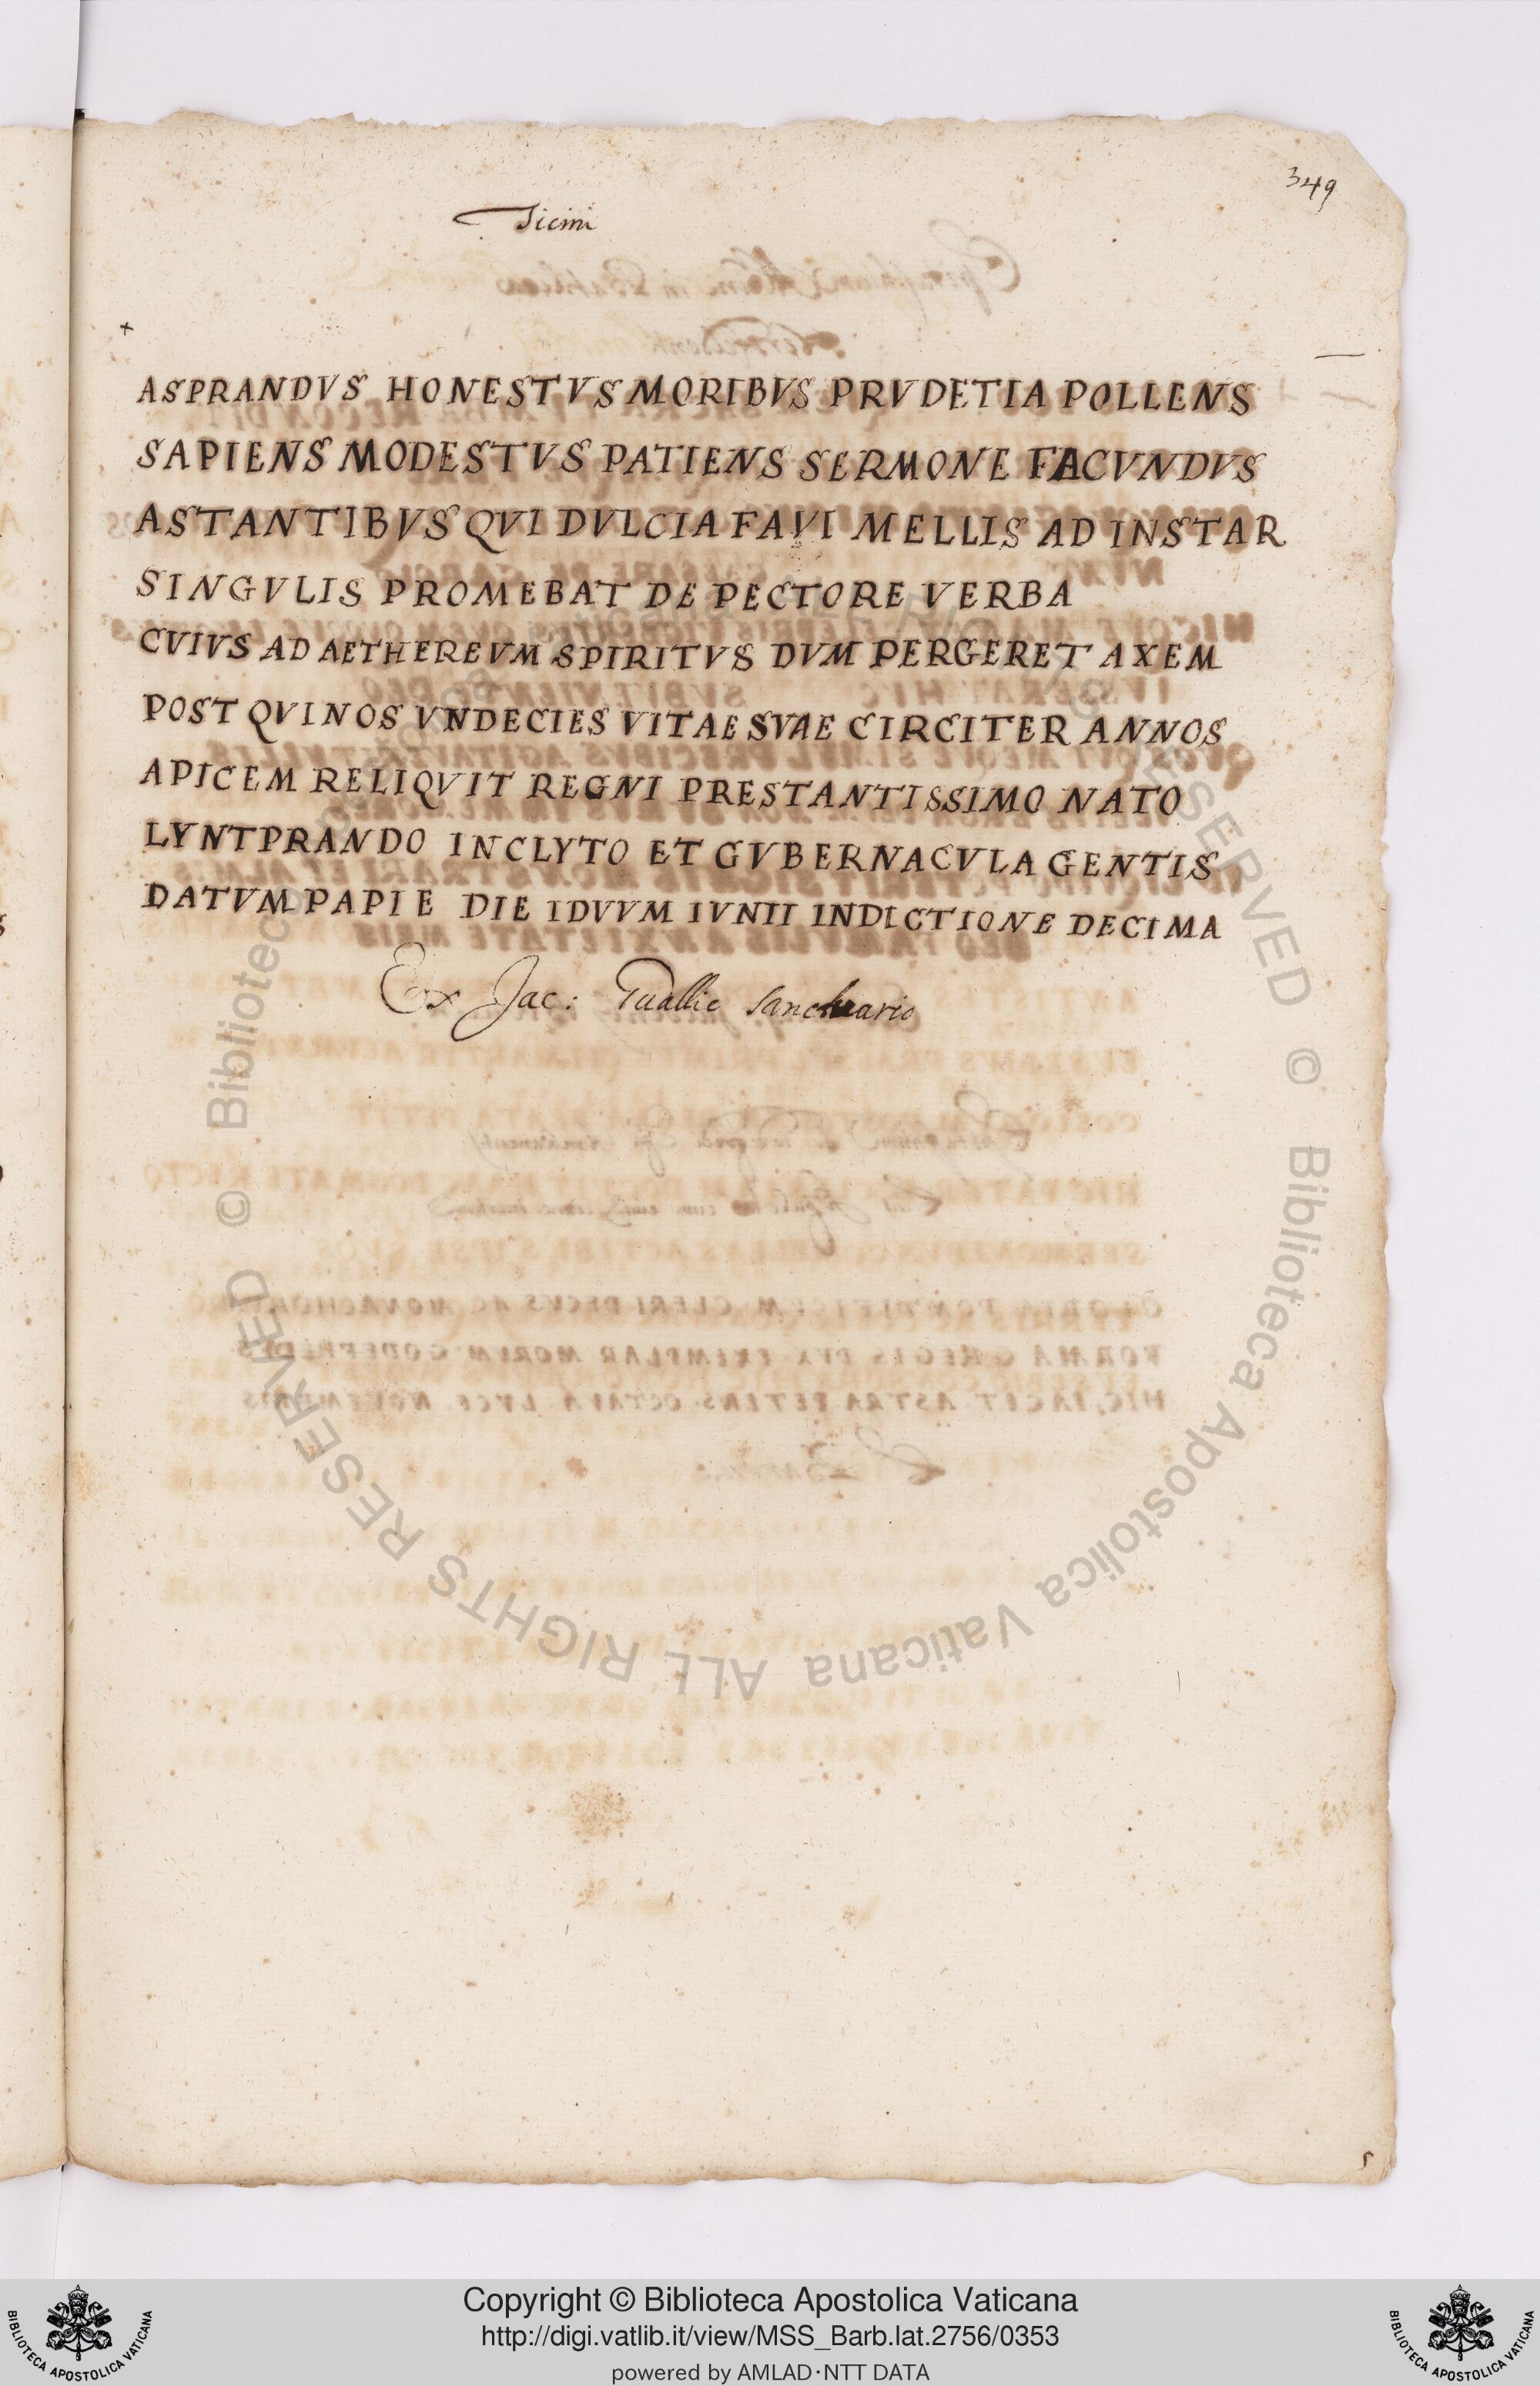 349
Ticini
+
ASPRANDVS HONESTVS MORIBVS PRVDETIA POLLENS
SAPIENS MODESTVS PATIENS SERMONE FACVNDVS
ASTANTIBVS QVI DVLCIA FAVI MELLIS AD INSTAR
SINGVLIS PROMEBAT DE PECTORE VERBA
CVIVS AD AETHEREVM SPIRITVS DVM PERGERET AXEM
POST QVINOS VNDECIES VITAE SVAE CIRCITER ANNOS
APICEM RELIQVIT REGNI PRESTANTISSIMO NATO
LYNTPRANDO INCLYTO ET GVBERNACVLA GENTIS
DATVM PAPIE DIE IDVVM IVNII INDICTIONE DECIMA
Ex Jac: Guallie sanctuario
© Biblioteca Apostolica Vaticana ALL RIGHTS RESERVED © Biblioteca Apostolica Vaticana ALL RIGHTS RESERVED
Copyright © Biblioteca Apostolica Vaticana
http://digi.vatlib.it/view/MSS_Barb.lat.2756/0353
powered by AMLAD·NTT DATA
BIBLIOTECA APOSTOLICA VATICANA
BIBLIOTECA APOSTOLICA VATICANA